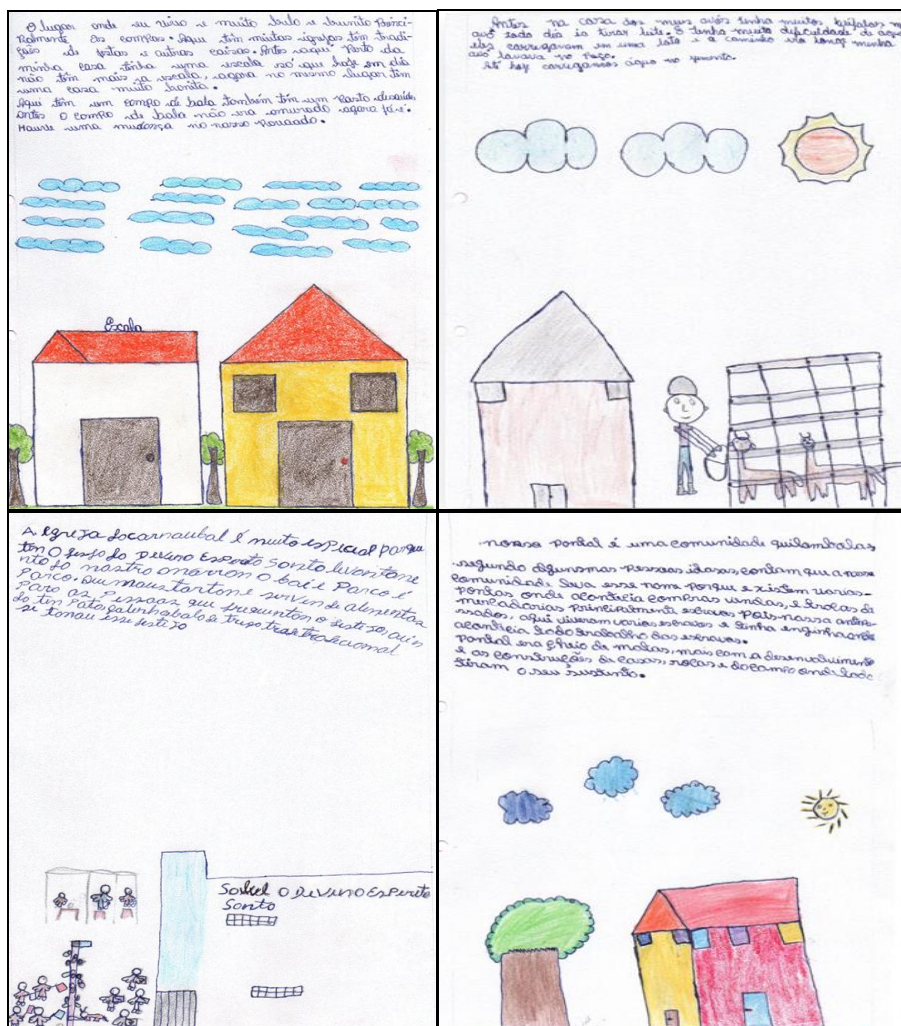 O lugar onde eu vivo e muito belo e bunito Princi-
palmente os campos. Aqui tim muitas igrejas tim tradi-
ções de festas e outras coisas. Antes aqui Perto da
minha casa tinha uma escola só que hoje em dia
não tim mais a escola, agora no mesmo lugar tim
uma casa muito bonita.
Aqui tim um campo de bola também tim um Posto desaúde,
antes O campo de bola não era amurado agora já é.
Houve uma mudança no nosso Povoado.
Escola
Antes na casa dos meus avós tinha muitos búfalos m
avó todo dia ia tirar leite. E tinha muita dificuldade de água
eles carregavam em uma lata e o caminho era longe minha
avó lavava no Poço.
Até hoj carregamos água no jumento.
A Egreja docarnaubal é muito especial porque
ten O fesejo do Devino Esperito Santo levantane
nto do mastro
Parco
Para as Pessoas que frequentan O festejo,
do ten Pato galinha
si tonau esse festejo
Sankel O Devino Esperito
Santo
nossa pontal é uma comunidade quilambalas
segundo algunsmas pessoas idosas, contam que a nossa
comunidade leva esse nome porque existem varias
pontas onde acontecia compras vendas, e trocas de
mercadorias principalmente escravos pois nossa antere-
ssados, aqui viveram varios escravos e tinha enginhoonde
acontecia todo trabalho dos escravos.
pontal era cheio de matas, mais com a desenvolvimento
e as construções de casas, roças e do campo onde todo
tiram o seu sustento.